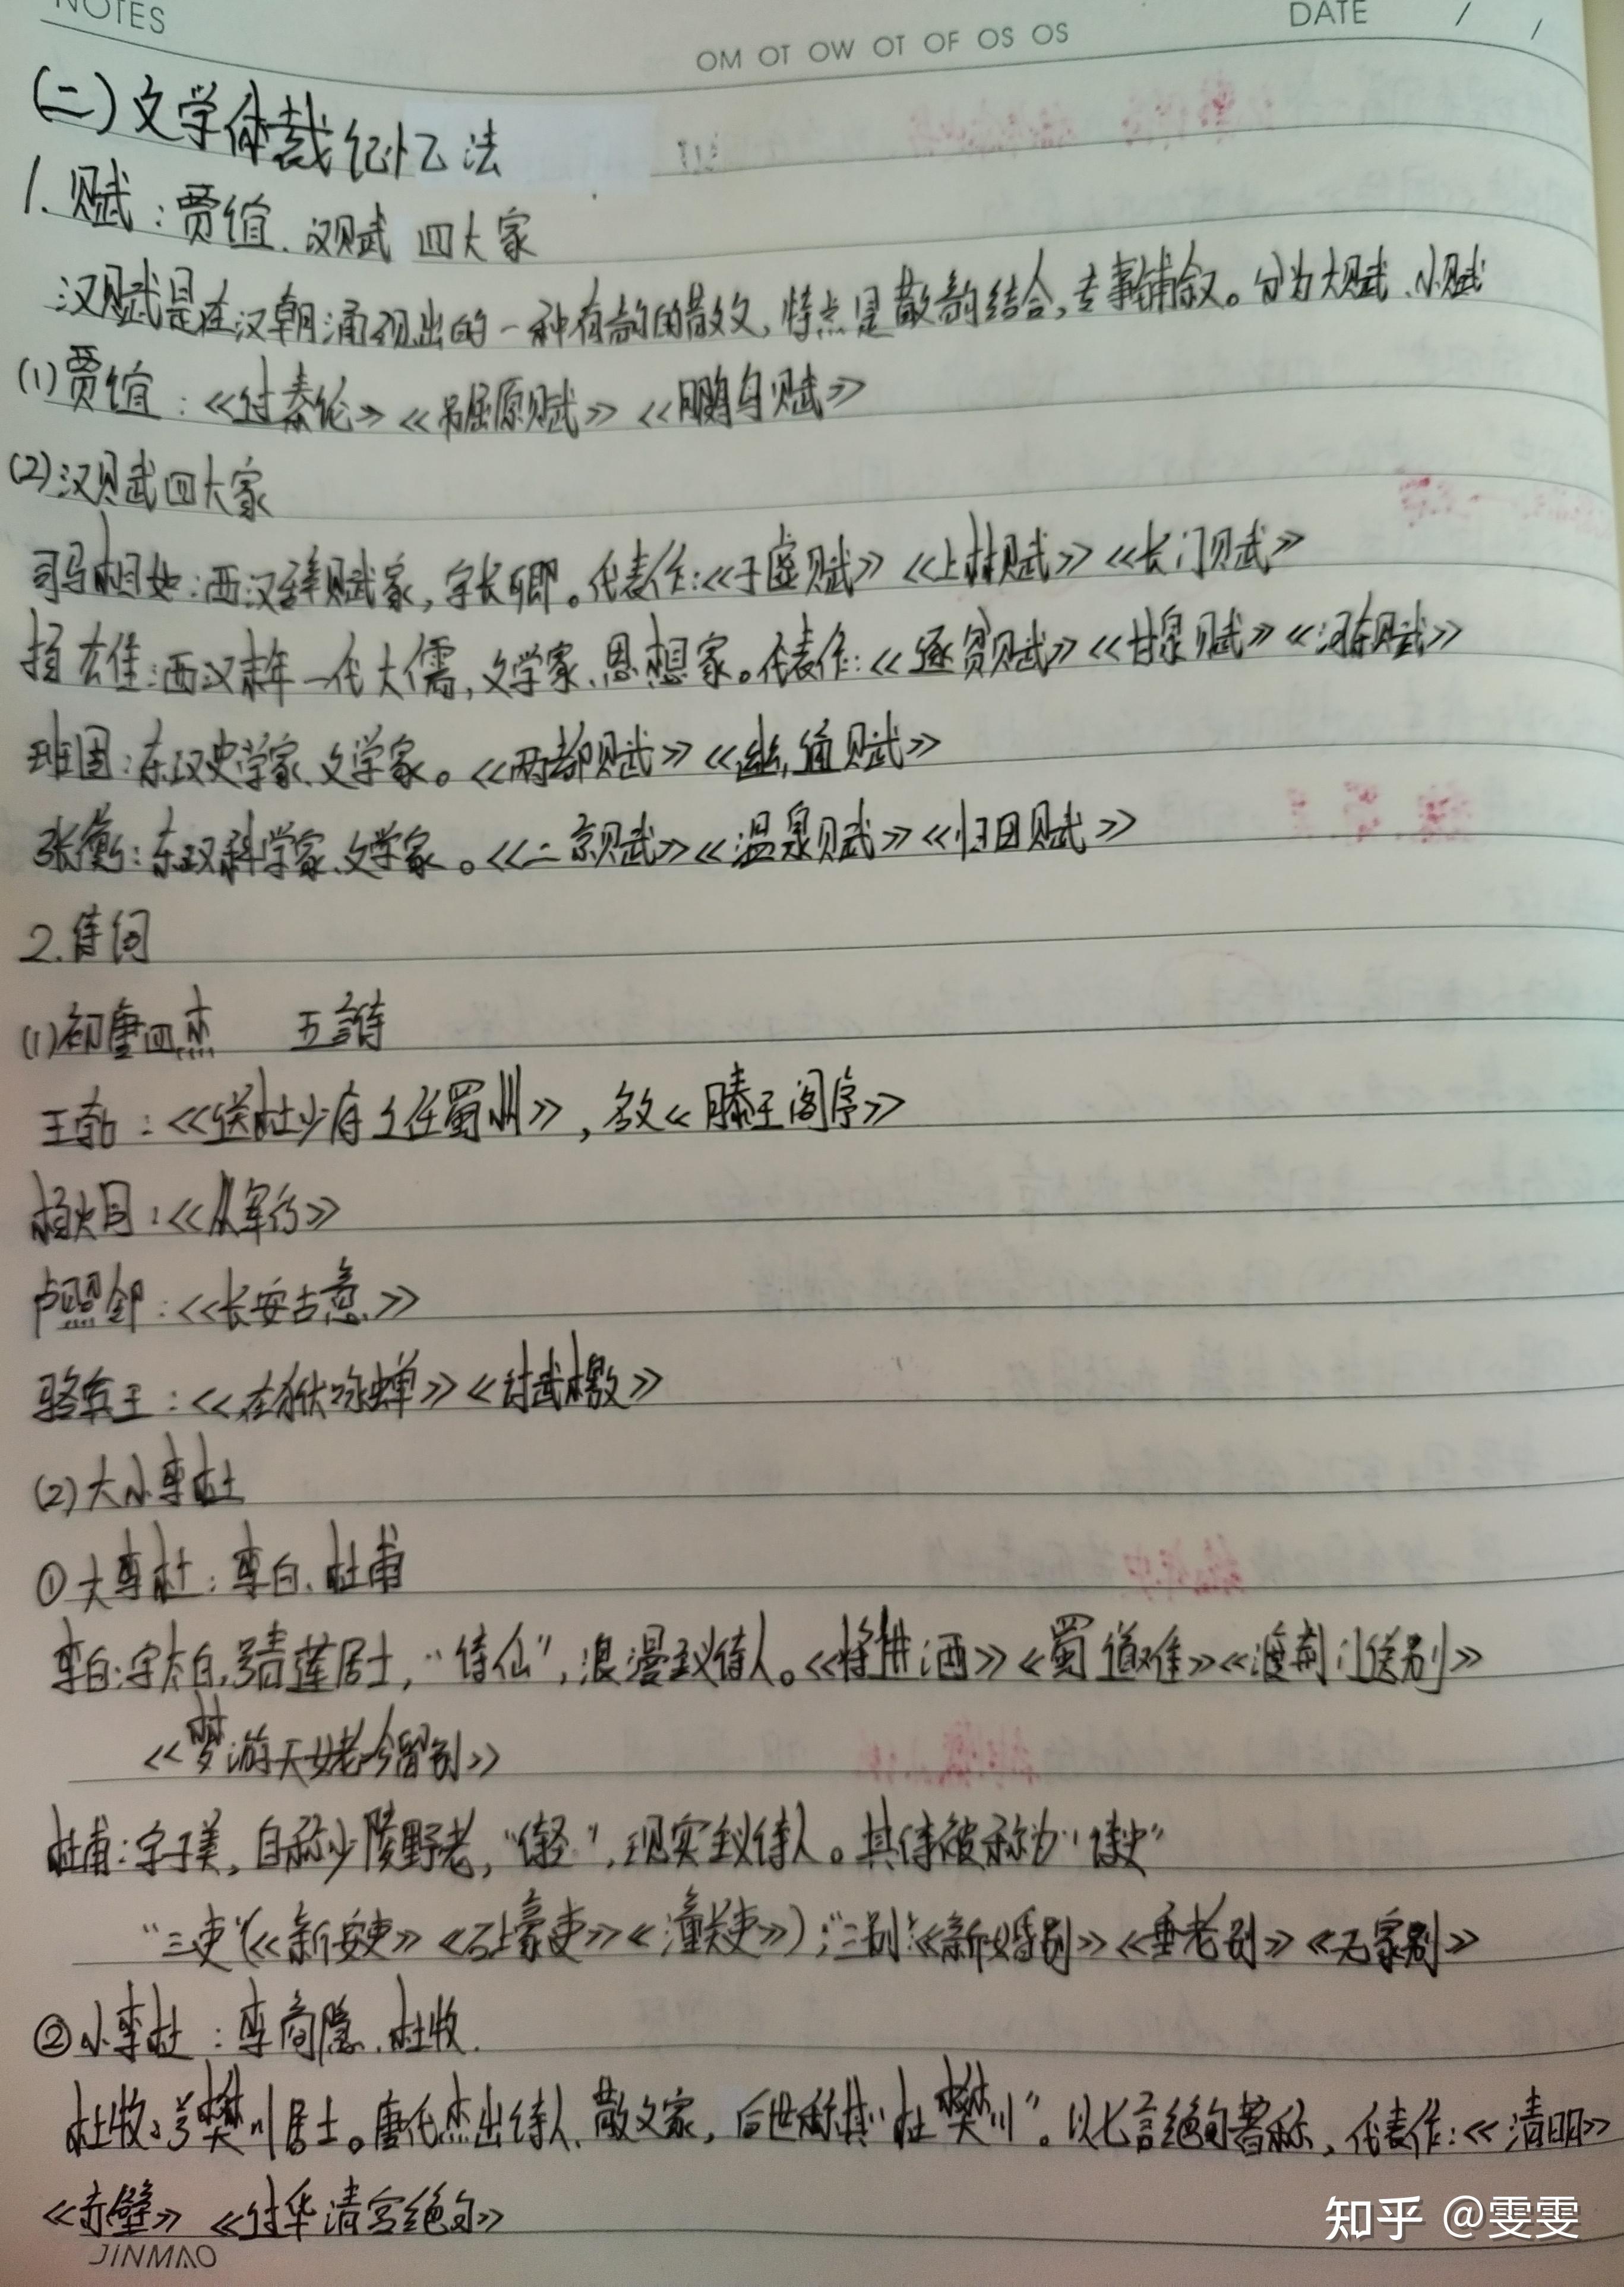 NOTES
OM OT OW OT OF OS OS
DATE / /
(二)文学体裁记忆法
1.赋:贾谊、汉赋四大家
汉赋是在汉朝涌现出的一种有韵的散文,特点是散韵结合,专事铺叙。分为大赋、小赋
(1)贾谊:《过秦论》《吊屈原赋》《鵩鸟赋》
(2)汉赋四大家
司马相如:西汉辞赋家,字长卿。代表作:《子虚赋》《上林赋》《长门赋》
扬雄:西汉末年一代大儒,文学家、思想家。代表作:《逐贫赋》《甘泉赋》《河东赋》
班固:东汉史学家、文学家。《两都赋》《幽通赋》
张衡:东汉科学家、文学家。《二京赋》《温泉赋》《归田赋》
2.诗词
(1)初唐四杰 五言诗
王勃:《送杜少府之任蜀州》,散文《滕王阁序》
杨炯:《从军行》
卢照邻:《长安古意》
骆宾王:《在狱咏蝉》《讨武檄》
(2)大小李杜
①大李杜:李白、杜甫
李白:字太白,号青莲居士,“诗仙”,浪漫主义诗人。《将进酒》《蜀道难》《渡荆门送别》
《梦游天姥吟留别》
杜甫:字子美,自称少陵野老,“诗圣”,现实主义诗人。其诗被称为“诗史”
“三吏”(《新安吏》《石壕吏》《潼关吏》);“三别”:《新婚别》《垂老别》《无家别》
②小李杜:李商隐、杜牧.
杜牧:号樊川居士。唐代杰出诗人、散文家,后世称其“杜樊川”。以七言绝句著称,代表作:《清明》
《赤壁》《过华清宫绝句》
JINMAO
知乎 @雯雯